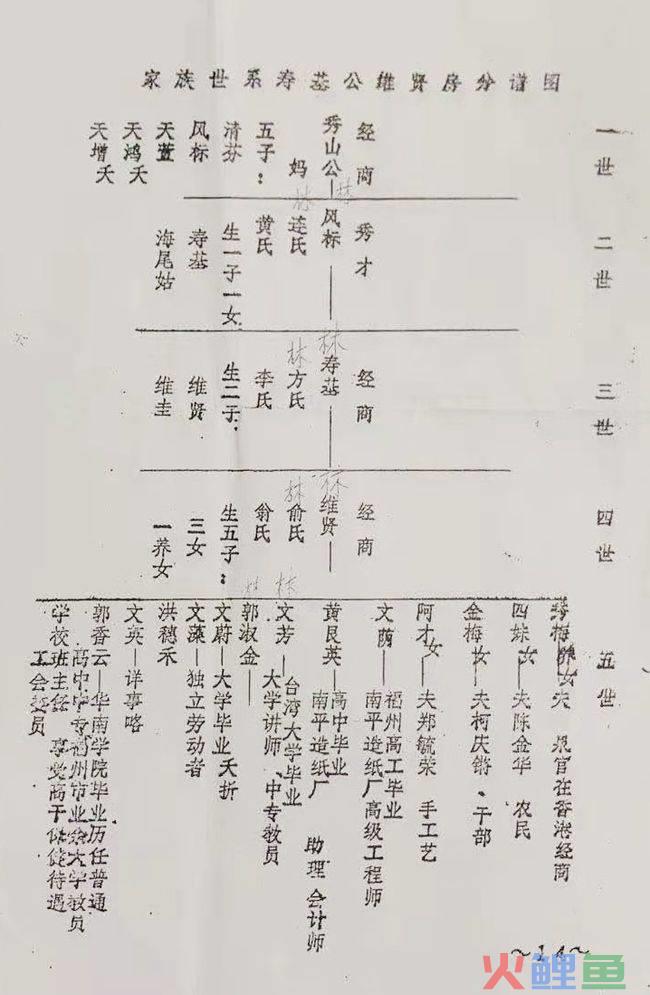 家族世系寿基公维贤房分谱图
一世
经商
秀山公—
妈
五子：
清芬
风标
天萱
天鸿夭
天增夭
二世
秀才
林
风标——
林
连氏
黄氏
生一子一女
寿基
海尾姑
三世
经商
林
寿基——
林
方氏
李氏
生二子
维贤
维圭
四世
经商
林
维贤—
林
俞氏
翁氏
生五子：
三女
一养女
五世
秀梅养女夫 泉官在香港经商
四妹女—夫陈金华 农民
金梅女—夫柯庆锵、干部
阿才女—夫郑毓荣 手工艺
文荫—福州高工毕业
南平造纸厂高级工程师
黄艮英—高中毕业
南平造纸厂 助理会计师
林
文芳—台湾大学毕业
大学讲师、中专教员
林
郭淑金—
文蔚—大学毕业 夭折
文藻—独立劳动者
洪穗禾
文英—详事略
郭香云—华南学院毕业历任普通
高中中专福州市业余大学教员
学校班主任 享受高干保健待遇
工会委员
~14~
火鲤鱼